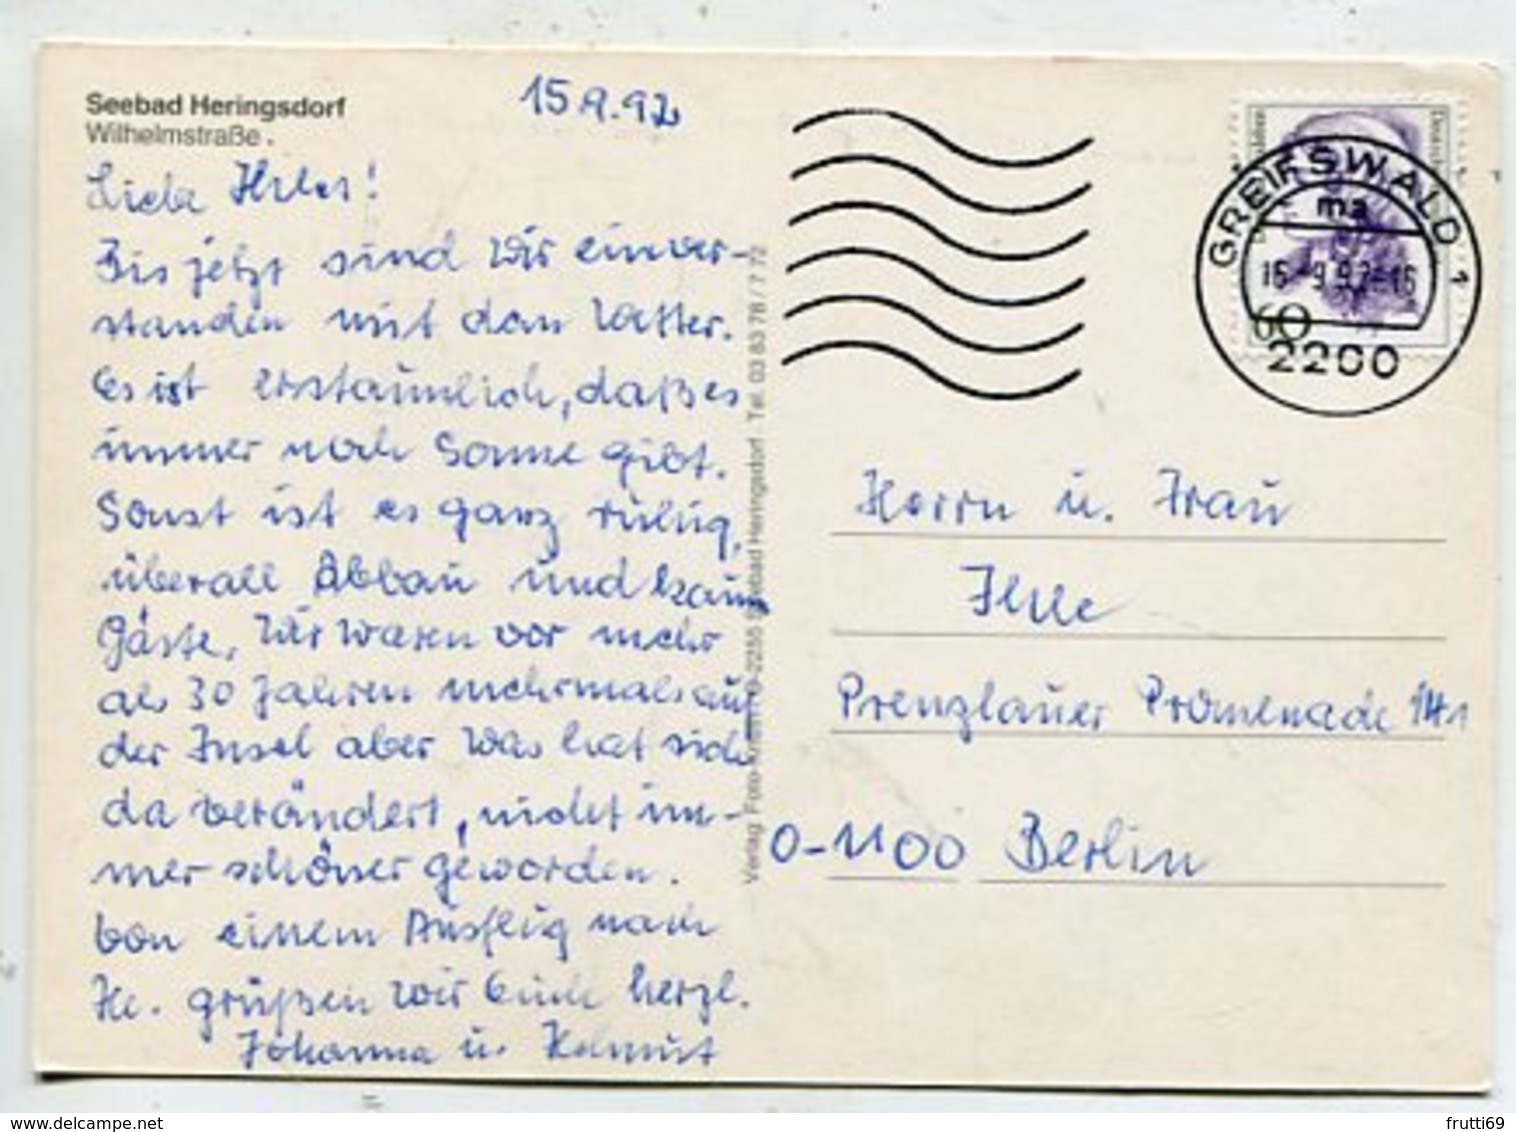 Seebad Heringsdorf
Wilhelmstraße.
15.9.92
Liebe
Bis jetzt sind wir einver-
standen mit dem Wetter.
Es ist erstaunlich, daß es
immer noch Sonne gibt.
Sonst ist es ganz ruhig,
überall Abbau und kaum
Gäste. Wir waren vor mehr
als 30 Jahren mehrmals auf
der Insel aber was hat sich
da verändert, nicht im-
mer schöner geworden.
Von einem Ausflug nach
He. grüßen wir Euch herzl.
Johanna u. Helmut
Verlag Foto- O-2255 Seebad Heringsdorf . Tel. 03 83 78 / 7 72
GREIFSWALD 1
ma
2200
60
Herrn u. Frau
Ihlle
Prenzlauer Promenade 141
O-1100 Berlin
delcampe.net
frutti69